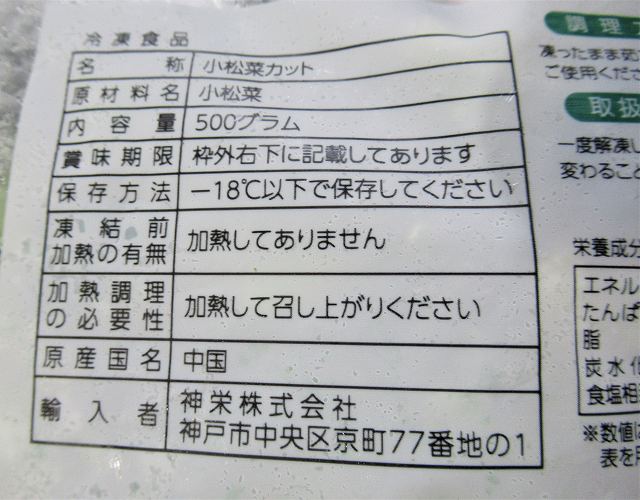 冷凍食品
名称 小松菜カット
原材料名 小松菜
内容量 500グラム
賞味期限 枠外右下に記載してあります
保存方法 －18℃以下で保存してください
凍結前
加熱の有無 加熱してありません
加熱調理
の必要性 加熱して召し上がりください
原産国名 中国
輸入者 神栄株式会社
神戸市中央区京町77番地の1
調理
凍ったまま茹
ご使用くださ
取扱
一度解凍し
変わること
栄養成分
エネル
たんぱ
脂
炭水化
食塩相
※数値は
表を用